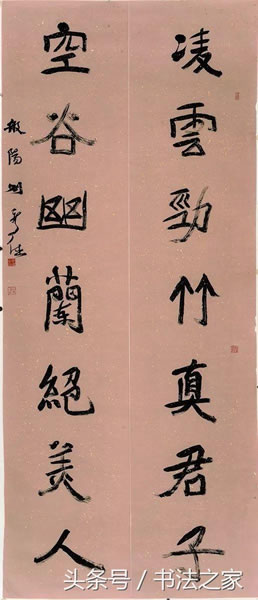 凌雲勁竹真君子
空谷幽蘭絕美人
头条号 / 书法之家